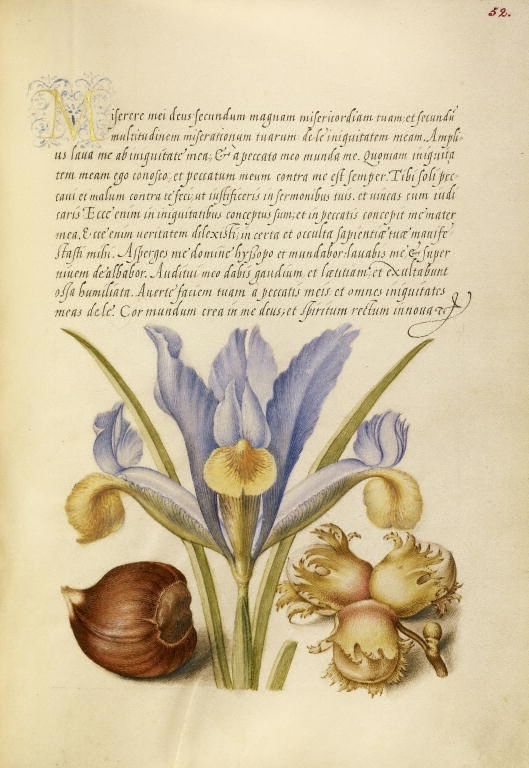 52.
Miserere mei deus secundum magnam misericordiam tuam, et secundũ
multitudinem miserationum tuarum dele iniquitatem meam. Ampli-
us laua me ab iniquitate mea, & à peccato meo munda me. Quoniam iniquita
tem meam ego conosco, et peccatum meum contra me est semper. Tibi soli pec-
caui et malum contra te feci, ut iustificeris in sermonibus tuis, et uincas cum iudi
caris Ecce enim in iniquitatibus conceptus sum, et in peccatis concepit me mater
mea. Ecce enim ueritatem dilexisti, incerta et occulta sapientiæ tuæ manife
stasti mihi. Asperges me domine hyssopo et mundabor. lauabis me & super
niuem dealbabor. Auditui meo dabis gaudium, et lætitiam, et exultabunt
ossa humiliata. Auerte faciem tuam a peccatis meis. et omnes iniquitates
meas dele. Cor mundum crea in me deus, et spiritum rectum innoua